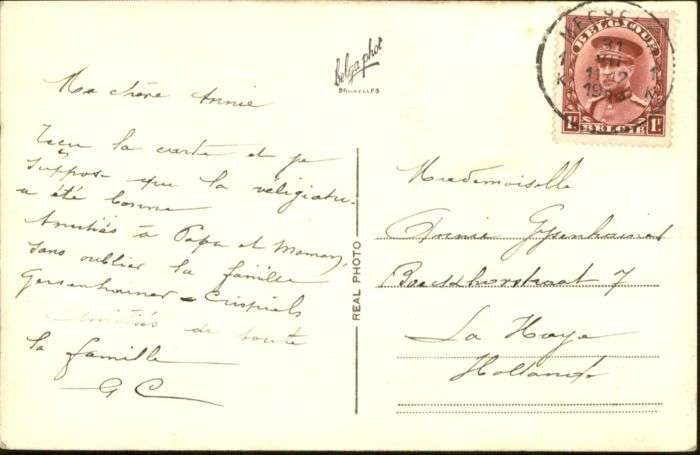 Ma chère Annie
Reçu ta carte et je
suppose que ta villégiatu-
a été bonne
Amitiés à Papa et Maman,
sans oublier la famille
Gersenhainer - Crispiels
Amitiés de toute
la famille
G C
Belgaphot
BRUXELLES
REAL PHOTO
BELGIQUE
1F BELGIE 1F
31
VII
11-12
K K
Mademoiselle
Annie
7
La Haye
Hollande